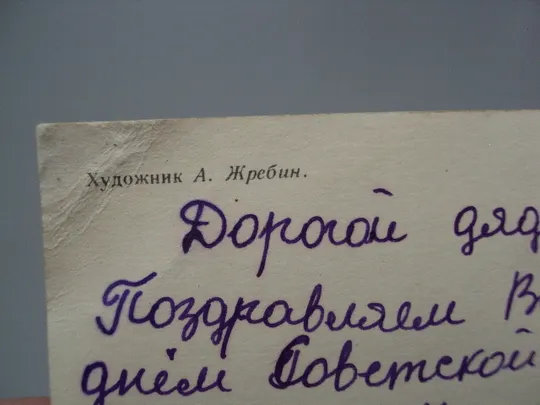 Художник А. Жребин.
Дорогой
Поздравляем
днём Советской